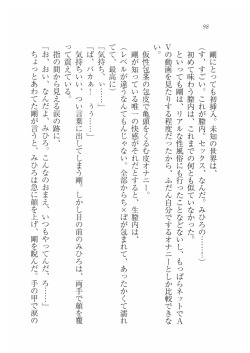 96
剛にとっても初挿入、未知の世界は、
(す、すごい。これが膣内、セックス、なんだ。みひろの……)
初めて味わう膣内は、これまでの何とも似ていなかった。
といっても剛は、リアルな性風俗にも行ったことなどないし、もっぱらネットでA
Vの動画を見たりする程度だったから、ふだん自分でするオナニーとしか比較できな
い。
仮性包茎の包皮で亀頭をくるむ皮オナニー。
剛が知っている唯一の快感がそれだとすると、生膣内は、
(レベルが違うなんてもんじゃない。全部からち×ぽが包まれて、あったかくて濡れ
てて、最高に)
「気持ち、……」
「ば、バカぁー！　うう……」
気持ちいい、つい言葉に出してしまう剛。しかし目の前のみひろは、両手で顔を覆
って震えている。
指の間から見える涙の跡に、
「お、おい、なんだよ、みひろ。こんなのおまえ、いつもやってんだ、ろ……」
ちょっとあわてた剛が言うと、みひろは急に顔を上げ、剛を睨んだ。手の甲で涙の